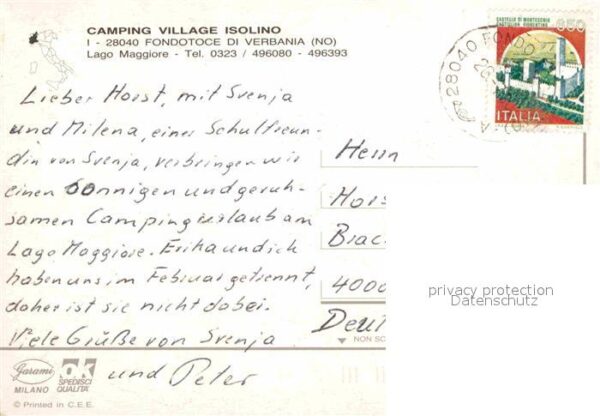 CAMPING VILLAGE ISOLINO
I - 28040 FONDOTOCE DI VERBANIA (NO)
Lago Maggiore - Tel. 0323 / 496080 - 496393
Lieber Horst, mit Svenja
und Milena, einer Schulfreun-
din von Svenja, verbringen wir
einen sonnigen und geruh-
samen Campingurlaub am
Lago Maggiore. Erika und ich
haben uns im Februar getrennt,
daher ist sie nicht dabei.
Viele Grüße von Svenja
und Peter
CASTELLO DI MONTECCHIO
CASTIGLION FIORENTINO
650
ITALIA
28040 FONDO
Herrn
Hors
Brac
4000
Deut
privacy protection
Datenschutz
NON SC
Garami
MILANO
OK
SPEDISCI
QUALITÀ
© Printed in C.E.E.